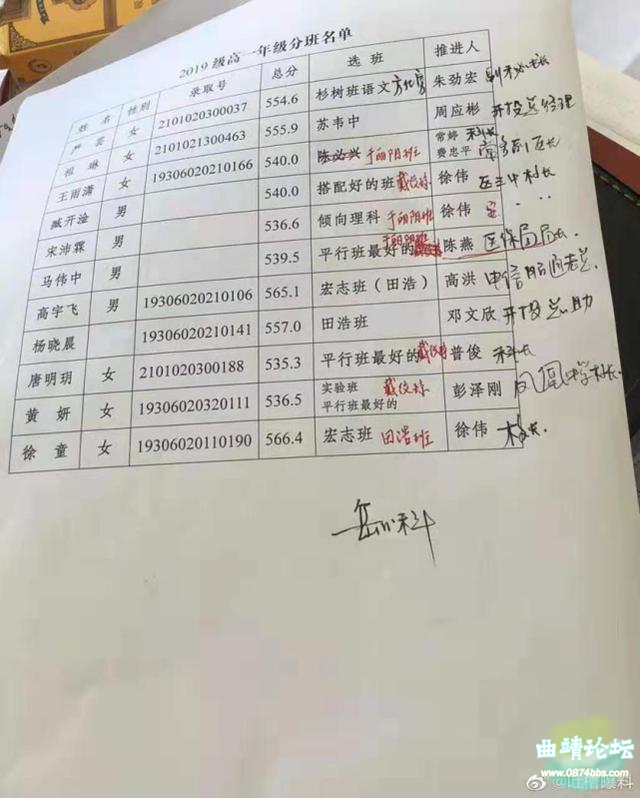 2019 级高一年级分班名单
姓 名 性别 录取号 总分 选 班 推进人
严 芸 女 2101020300037 554.6 杉树班语文 朱劲宏
祖 琳 女 2101021300463 555.9 苏韦中 周应彬 开投总经理
王雨潇 女 19306020210166 540.0 陈必兴 于丽阴班 常婷 科长 费忠平
臧开淦 男 540.0 搭配好的班 戴仪琼 徐伟
宋沛霖 男 536.6 倾向理科 于丽阴班 徐伟 〃 〃
马伟中 男 539.5 平行班最好的 于丽阴班 陈燕 医保局局长
高宇飞 男 19306020210106 565.1 宏志班（田浩） 高洪 电信昭通老总
杨晓晨 19306020210141 557.0 田浩班 邓文欣 开投总助
唐明玥 女 2101020300188 535.3 平行班最好的 戴仪琼 普俊 科长
黄 妍 女 19306020320111 536.5 实验班 平行班最好的 戴仪琼 彭泽刚 凤凰中学校长
徐 童 女 19306020110190 566.4 宏志班 田浩班 徐伟 校长
曲靖论坛
www.0874bbs.com
@吐槽曝料